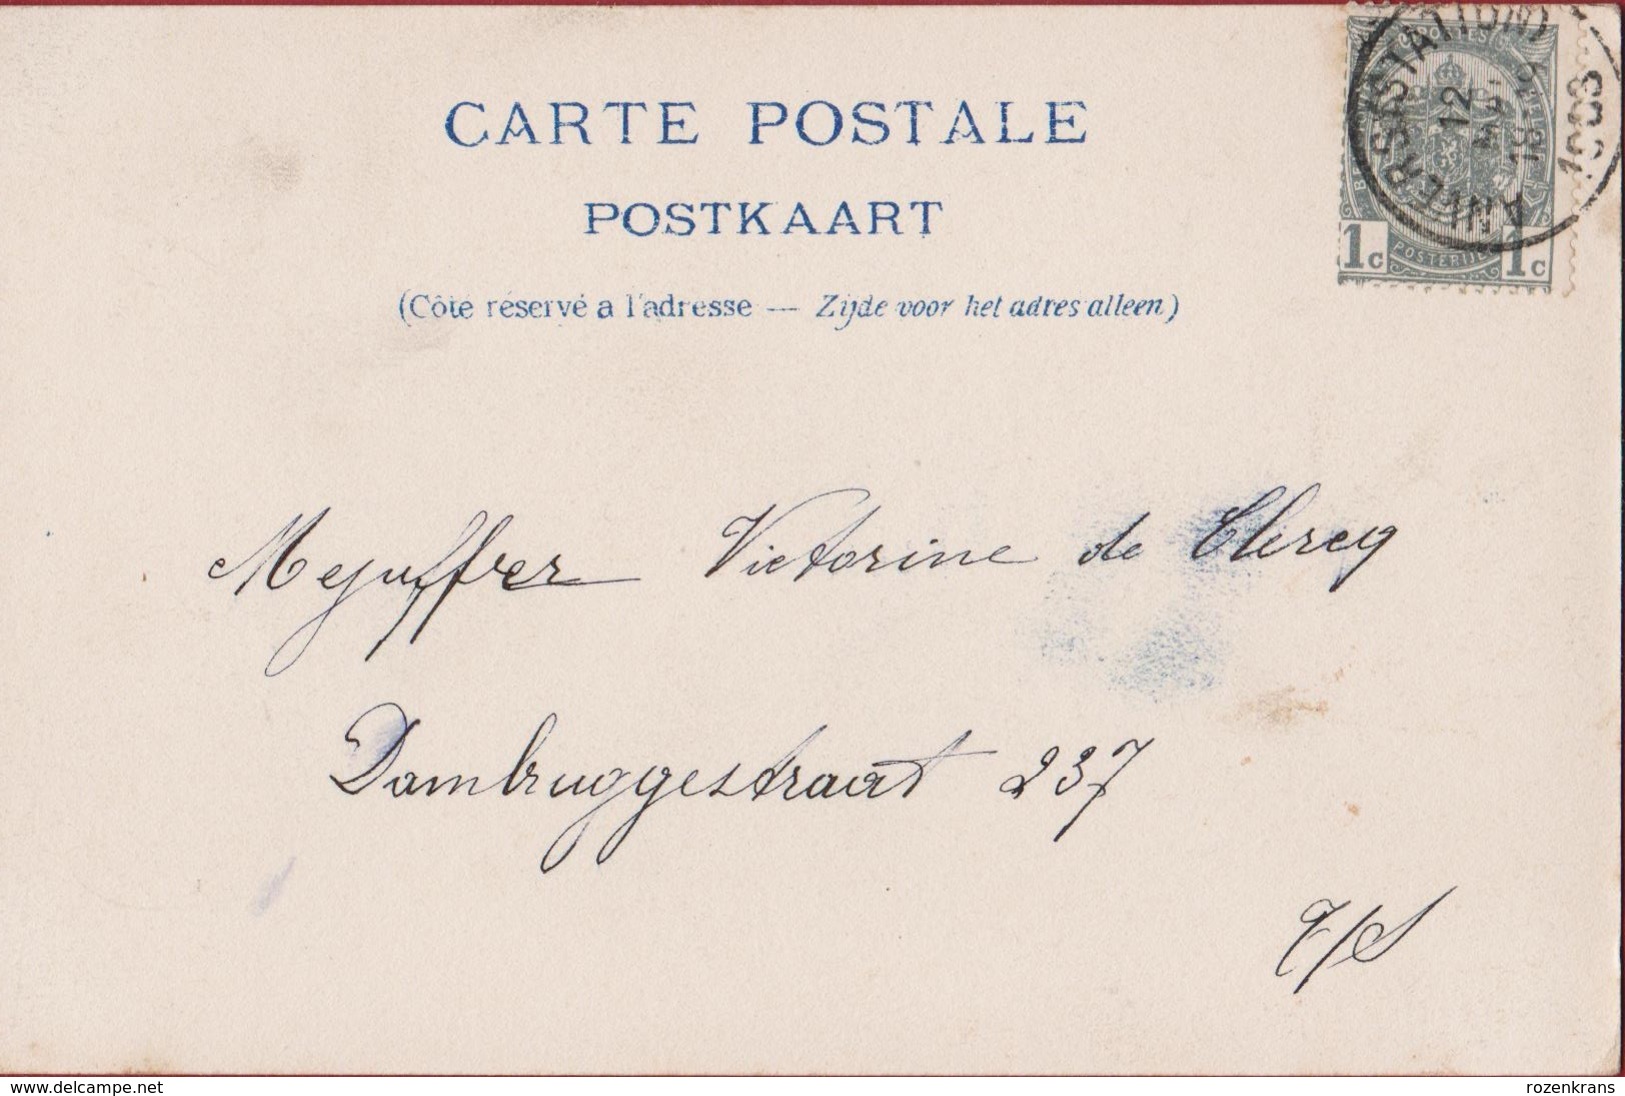 CARTE POSTALE
POSTKAART
(Côte réservé a l'adresse — Zijde voor het adres alleen)
POSTES
1c POSTERIJEN 1c
ANVERS (STATION)
12
18 19
1903
Mejuffer Victorine de Clercq
Dambruggestraat 237
T/S
www.delcampe.net
rozenkrans